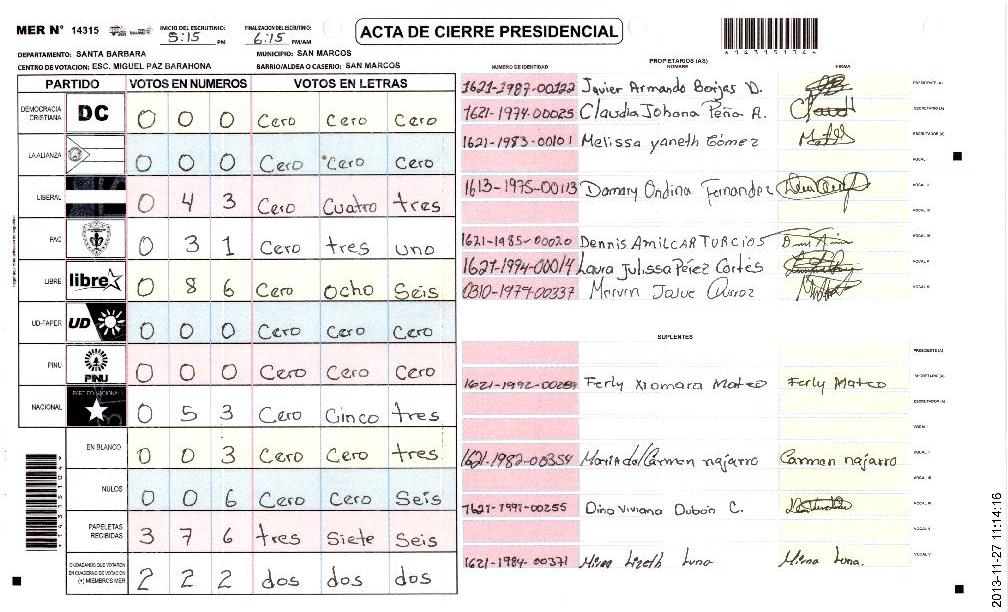 MER Nº 14315 INICIO DEL ESCRUTINIO: 5:15 PM FINALIZACION DEL ESCRUTINIO: 6:15 PM/AM
ACTA DE CIERRE PRESIDENCIAL
DEPARTAMENTO: SANTA BARBARA MUNICIPIO: SAN MARCOS
CENTRO DE VOTACION: ESC. MIGUEL PAZ BARAHONA BARRIO/ALDEA O CASERIO: SAN MARCOS
PARTIDO VOTOS EN NUMEROS VOTOS EN LETRAS
DEMOCRACIA CRISTIANA DC 0 0 0 Cero Cero Cero
LA ALIANZA 0 0 0 Cero Cero Cero
LIBERAL 0 4 3 Cero Cuatro tres
PAC 0 3 1 Cero tres uno
LIBRE libre 0 8 6 Cero Ocho Seis
UD-FAPER UD 0 0 0 Cero Cero Cero
PINU PINU 0 0 0 Cero Cero Cero
NACIONAL PARTIDO NACIONAL 0 5 3 Cero Cinco tres
EN BLANCO 0 0 3 Cero Cero tres
NULOS 0 0 6 Cero Cero Seis
PAPELETAS RECIBIDAS 3 7 6 tres Siete Seis
CIUDADANOS QUE VOTARON EN CUADERNO DE VOTACION (+) MIEMBROS MER 2 2 2 dos dos dos
PROPIETARIOS (AS)
NUMERO DE IDENTIDAD NOMBRE FIRMA
1621-1987-00122 Javier Armando Borjas D. PRESIDENTE (A)
1621-1974-00025 Claudia Johana Peña A. SECRETARIO (A)
1621-1983-00101 Melissa yaneth Gómez ESCRUTADOR (A)
VOCAL I
1613-1975-00113 Damary Ondina Fernandez VOCAL II
VOCAL III
1621-1985-00020 Dennis AMILCAR TURCIOS VOCAL IV
1627-1994-00014 Laura Julissa Pérez Cortés VOCAL V
0310-1979-00337 Marvin Josue VOCAL VI
SUPLENTES
PRESIDENTE (A)
1621-1992-00289 Ferly Xiomara Mateo Ferly Mateo SECRETARIO (A)
ESCRUTADOR (A)
VOCAL I
1621-1982-00354 Maria del Carmen najarro Carmen najarro VOCAL II
VOCAL III
1621-1991-00255 Dina Viviana Dubon C. VOCAL IV
VOCAL V
1621-1984-00371 Mirna Lizeth Luna Mirna Luna. VOCAL VI
2013-11-27 11:14:16